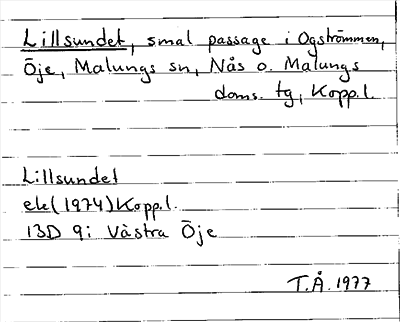 Lillsundet, smal passage i Ogströmmen,
Öje, Malungs sn, Nås o. Malungs
doms. tg, Kopp.l.
Lillsundet
ek(1974)Kopp.l.
13D 9i Västra Öje
T.Å. 1977